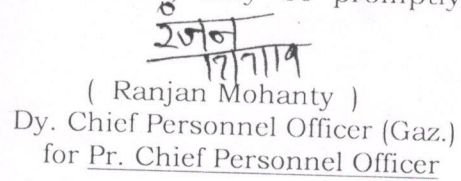 promptly
रंजन
17/7/19
( Ranjan Mohanty )
Dy. Chief Personnel Officer (Gaz.)
for Pr. Chief Personnel Officer